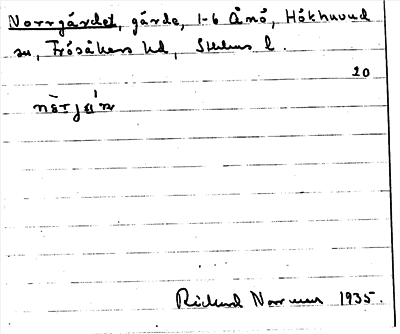 Norrgärdet, gärde, 1-6 Ånö, Hökhuvud
sn, Frösåkers hd, Sthlms l.
20
Rickard Norrman 1935.